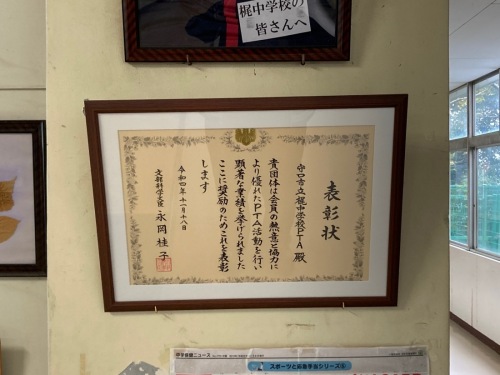 梶中学校の
皆さんへ
表彰状
守口市立梶中学校PTA殿
貴団体は会員の熱意と協力に
より優れたPTA活動を行い
顕著な業績を挙げられました
ここに奨励のためこれを表彰
します
令和四年十一月十八日
文部科学大臣 永岡桂子
中学保健ニュース
スポーツと応急手当シリーズ⑤